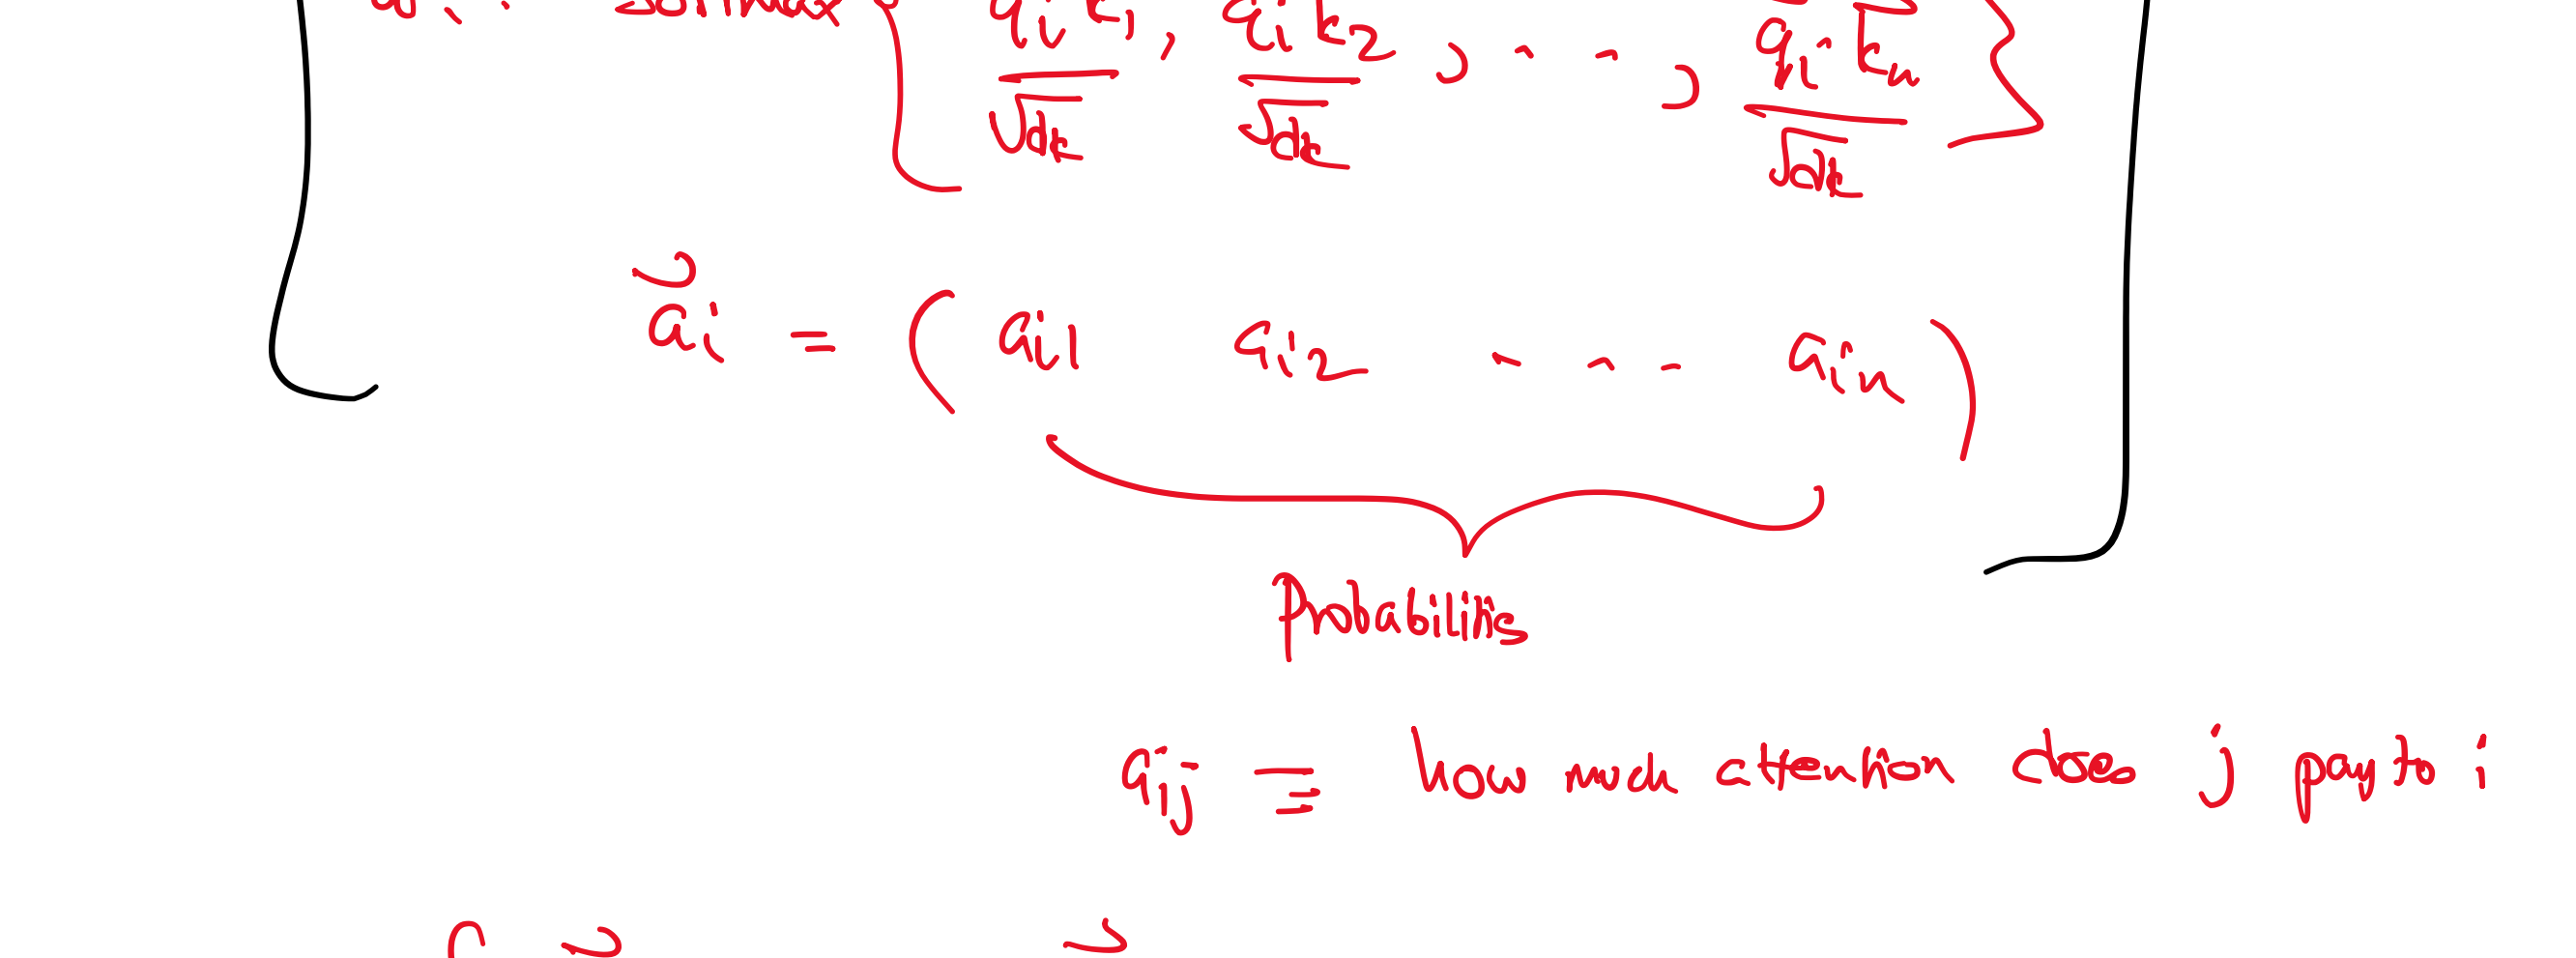 q_i · k_1 / √dk , q_i · k_2 / √dk , . . . , q_i · k_n / √dk }
a_i = ( a_i1 a_i2 - - - a_in )
Probabilities
a_ij ≡ how much attention does j pay to i